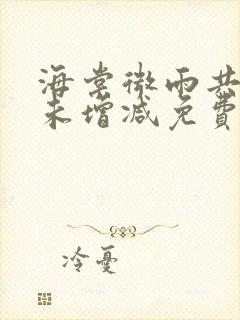 海棠微雨共
未增减免費
冷憂